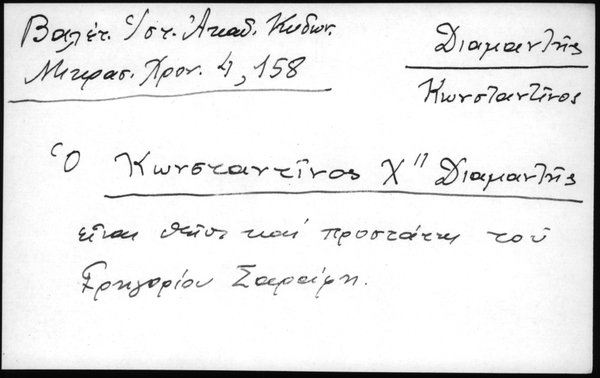 Βαλέτ. Ἱστ. Ἀκαδ. Κυδων.
Μικρασ. Χρον. 4, 158
Διαμαντῆς
Κωνσταντῖνος
Ὁ Κωνσταντῖνος Χ" Διαμαντῆς
εἶναι θεῖος καί προστάτης τοῦ
Γρηγορίου Σαράφη.